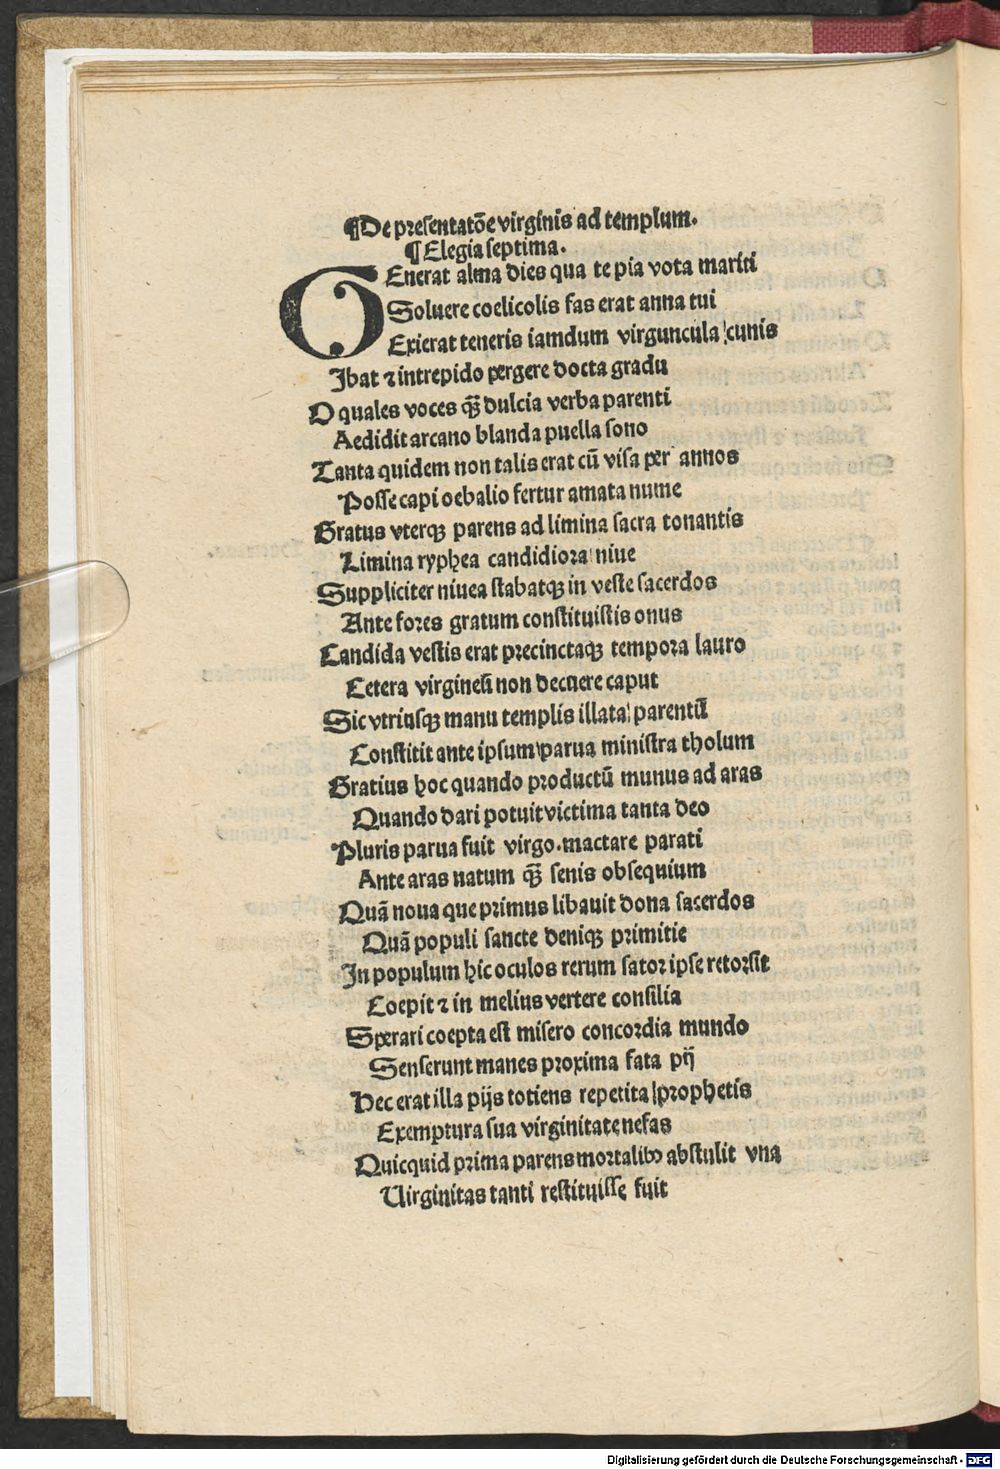 ¶De presentatõe virginis ad templum.
¶Elegia septima.
GEnerat alma dies qua te pia vota mariti
Soluere coelicolis fas erat anna tui
Exierat teneris iamdum virguncula cunis
Ibat ⁊ intrepido pergere docta gradu
O quales voces qꝫ dulcia verba parenti
Aedidit arcano blanda puella sono
Tanta quidem non talis erat cũ visa per annos
Posse capi oebalio fertur amata nume
Gratus vterqꝫ parens ad limina sacra tonantis
Limina ryphea candidiora niue
Suppliciter niuea stabatqꝫ in veste sacerdos
Ante fores gratum constituistis onus
Candida vestis erat precinctaqꝫ tempora lauro
Cetera virgineũ non decuere caput
Sic vtriusqꝫ manu templis illata parentũ
Constitit ante ipsum parua ministra tholum
Gratius hoc quando productũ munus ad aras
Quando dari potuit victima tanta deo
Pluris parua fuit virgo. mactare parati
Ante aras natum qꝫ senis obsequium
Quã noua que primus libauit dona sacerdos
Quã populi sancte deniqꝫ primitie
In populum hic oculos rerum sator ipse retorsit
Coepit ⁊ in melius vertere consilia
Sperari coepta est misero concordia mundo
Senserunt manes proxima fata pij
Hec erat illa pijs totiens repetita prophetis
Exemptura sua virginitate nefas
Quicquid prima parens mortalibꝰ abstulit vna
Uirginitas tanti restituisse fuit
Digitalisierung gefördert durch die Deutsche Forschungsgemeinschaft - DFG